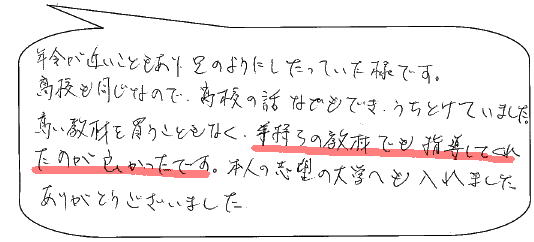 年令が近いこともあり兄のようにしたっていた様です。
高校も同じなので、高校の話などもでき、うちとけていました。
高い教材を買うこともなく、手持ちの教材でも指導してくれ
たのが良かったです。本人の志望の大学へも入れました
ありがとうございました